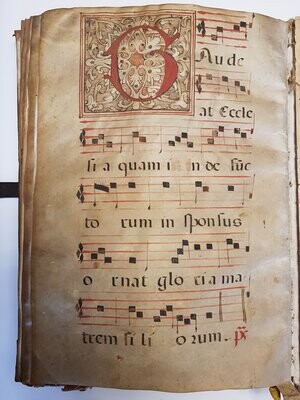 GAude
at Eccle
si a quam i n de fũc
to rum in sponsus
o rnat glo ria ma
trem fi li o rum.